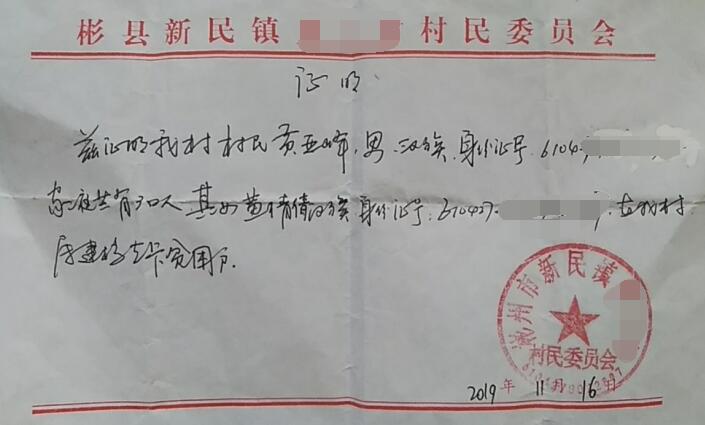 彬县新民镇 村民委员会
证明
兹证明我村村民黄亚峰,男,汉族,身份证号:610427
家庭共有 口人,其女黄倩倩汉族身份证号:610427 ,在我村
属建档立卡贫困户.
彬州市新民镇
村民委员会
2019年11月16日